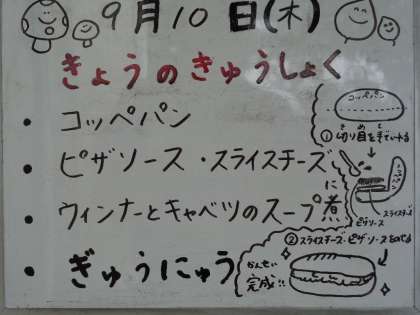 9月10日(木)
きょうのきゅうしょく
・コッペパン
・ピザソース・スライスチーズ
・ウィンナーとキャベツのスープ煮
・ぎゅうにゅう
コッペパン
①切り目を手でいれる
き め て
スライスチーズ
ピザソース
②スライスチーズ・ピザソースをはさむ
かんせい
完成!!